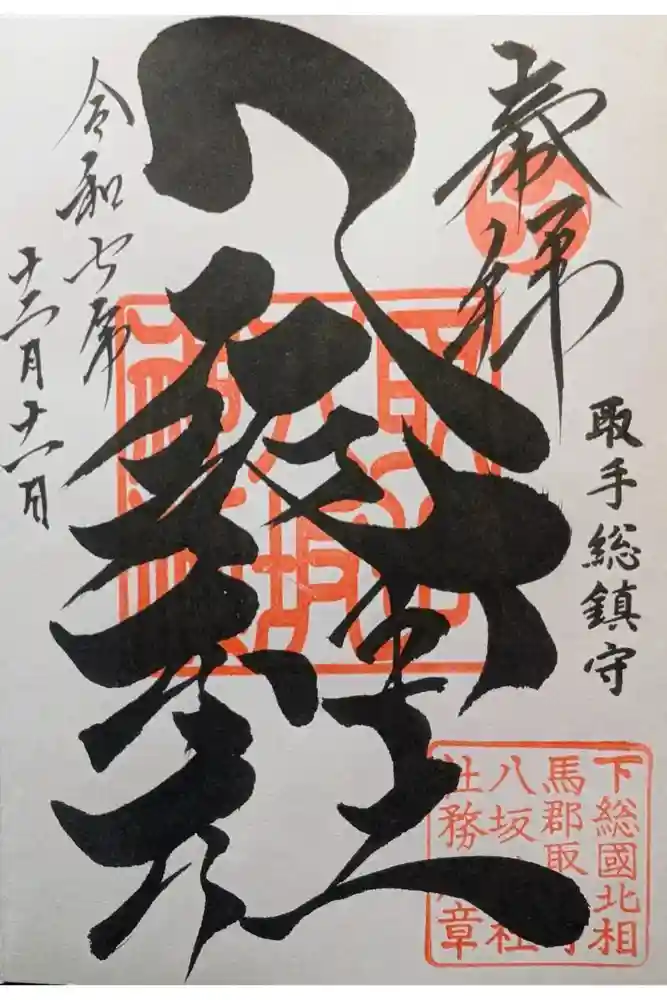 奉拝
取手総鎮守
八坂神社
令和七年
十二月十一日
八坂
神社
下総國北相
馬郡取
八坂社
社務章